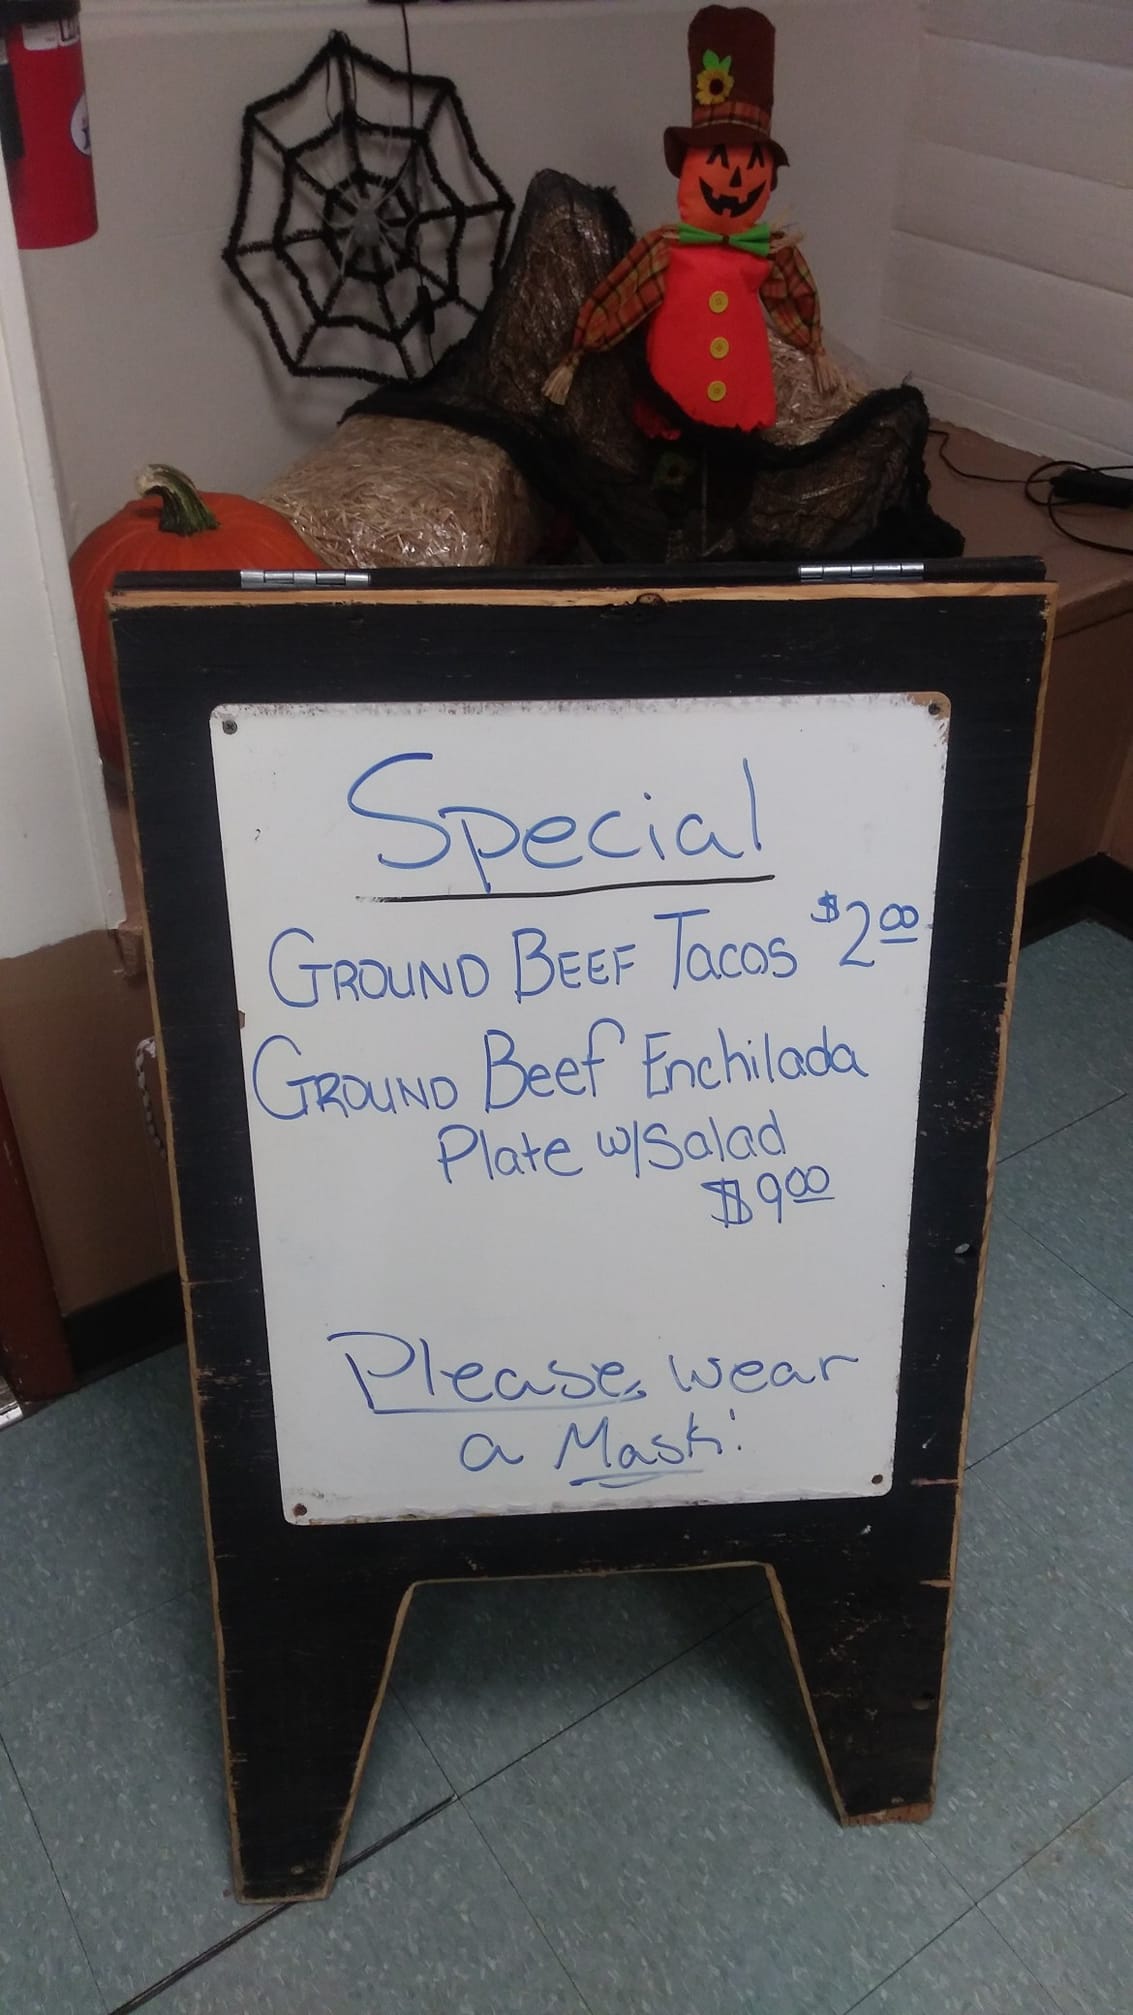 Special
GROUND BEEF Tacos $2.00
GROUND Beef Enchilada
Plate w/Salad
$9.00
Please, wear
a Mask!